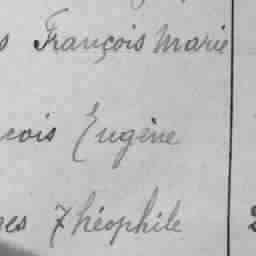 s François Marie
cois Eugène
es Théophile